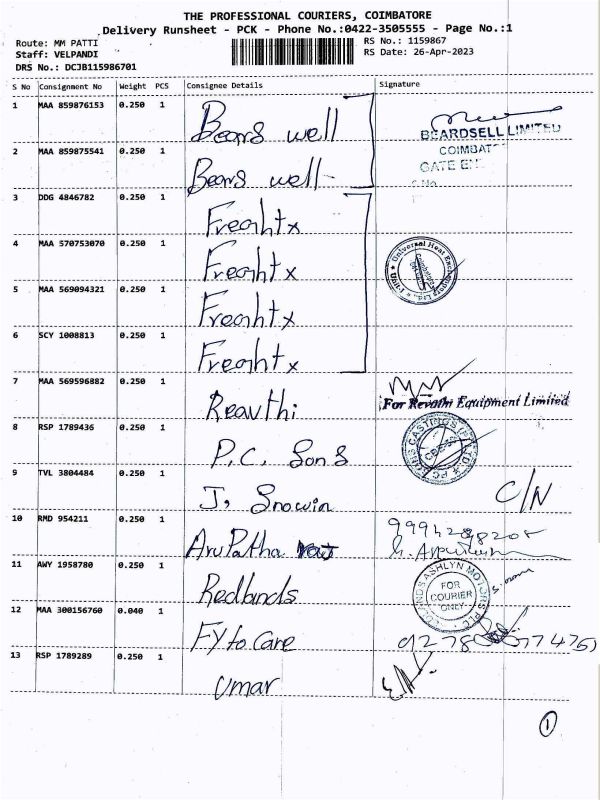 THE PROFESSIONAL COURIERS, COIMBATORE
Delivery Runsheet - PCK - Phone No.:0422-3505555 - Page No.:1
Route: MM PATTI RS No.: 1159867
Staff: VELPANDI RS Date: 26-Apr-2023
DRS No.: DCJB115986701
S No Consignment No Weight PCS Consignee Details Signature
1 MAA 859876153 0.250 1 Bears well
BEARDSELL LIMITED
2 MAA 859875541 0.250 1 Bears well
COIMBAT
GATE
3 DDG 4846782 0.250 1 Freaht x
4 MAA 570753070 0.250 1 Freaht x
Universal Heat Exchangers Ltd.,
5 MAA 569094321 0.250 1 Freaht x
6 SCY 1008813 0.250 1 Freaht x
7 MAA 569596882 0.250 1 Reavthi
For Revathi Equipment Limited
8 RSP 1789436 0.250 1 P.C. Sons
CASTINGS (P) LTD
9 TVL 3804484 0.250 1 J, Snowin C/N
10 RMD 954211 0.250 1 Aru Patha
11 AWY 1958780 0.250 1 Redlands
REDLANDS ASHLYN MOTORS PLC
FOR
COURIER
ONLY
12 MAA 300156760 0.040 1 FY to Care
13 RSP 1789289 0.250 1 Umar
1